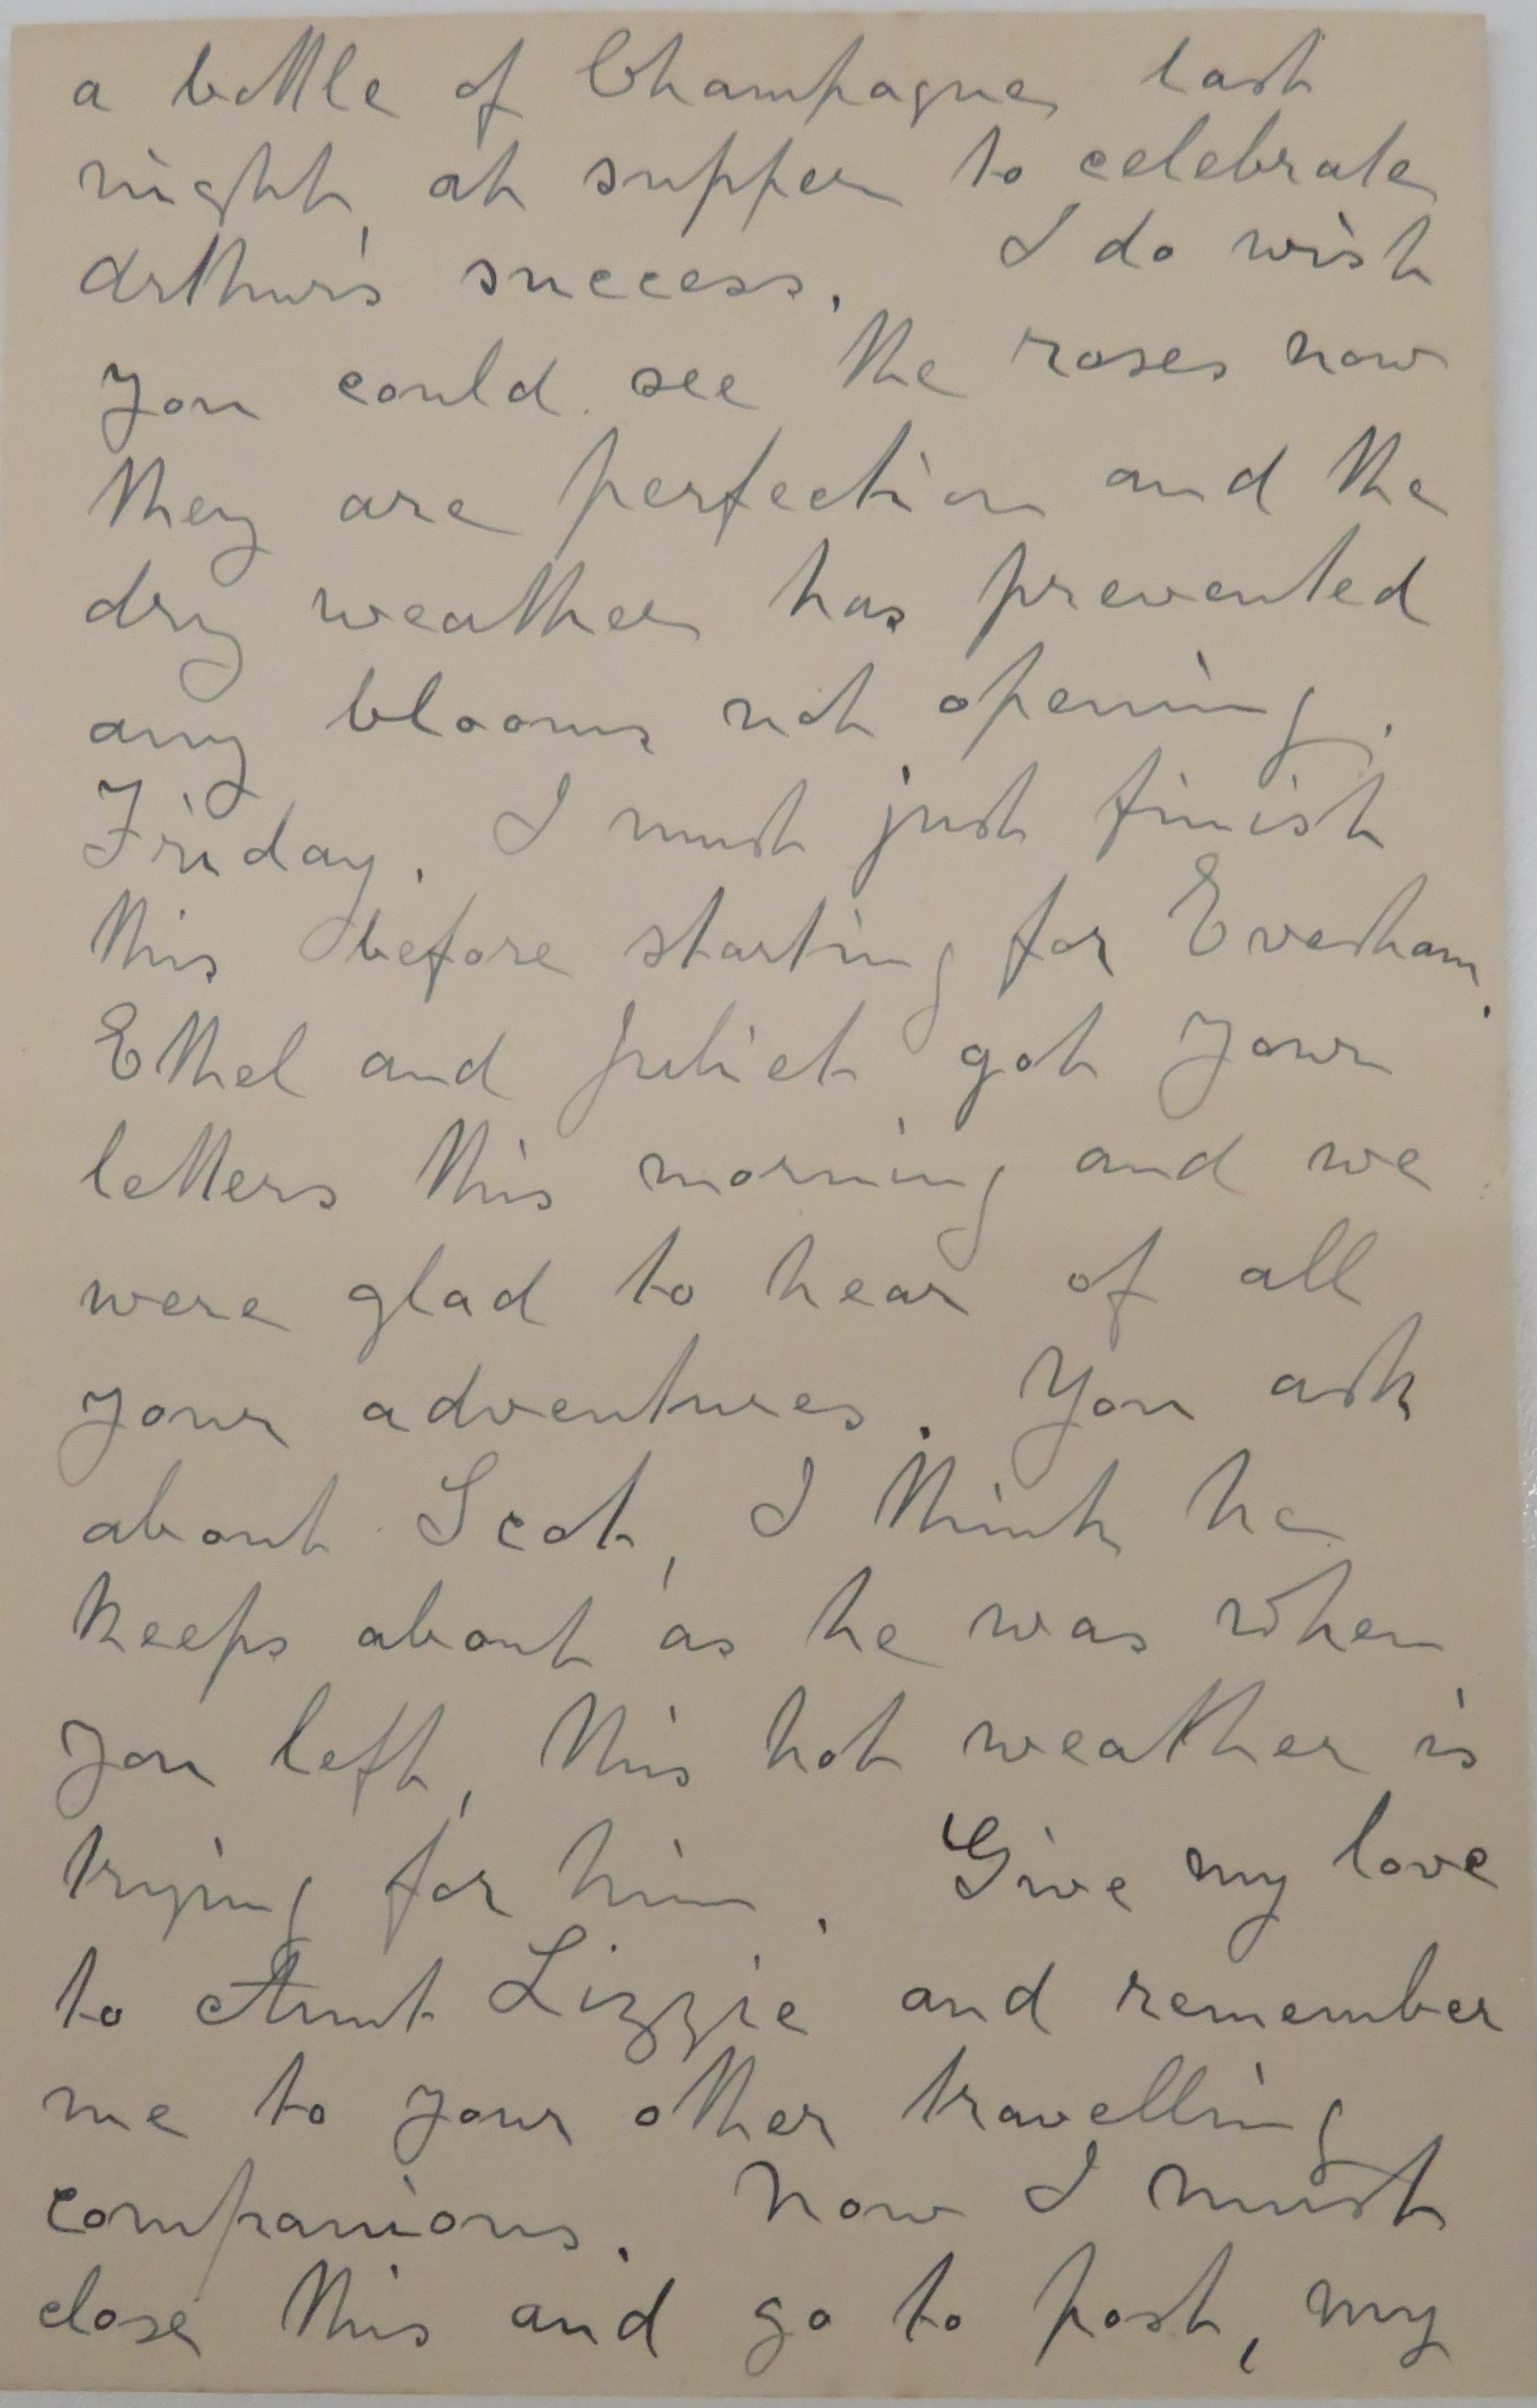 a bottle of Champagne last
night, at supper to celebrate
Arthur's success. I do wish
you could see the roses now
they are perfection and the
dry weather has prevented
any blooms not opening.
Friday. I must just finish
this before starting for Evesham.
Ethel and Juliet got your
letters this morning and we
were glad to hear of all
your adventures. You ask
about Scot, I think he
keeps about as he was when
you left, this hot weather is
trying for him. Give my love
to Aunt Lizzie and remember
me to your other travelling
companions. Now I must
close this and go to post, my